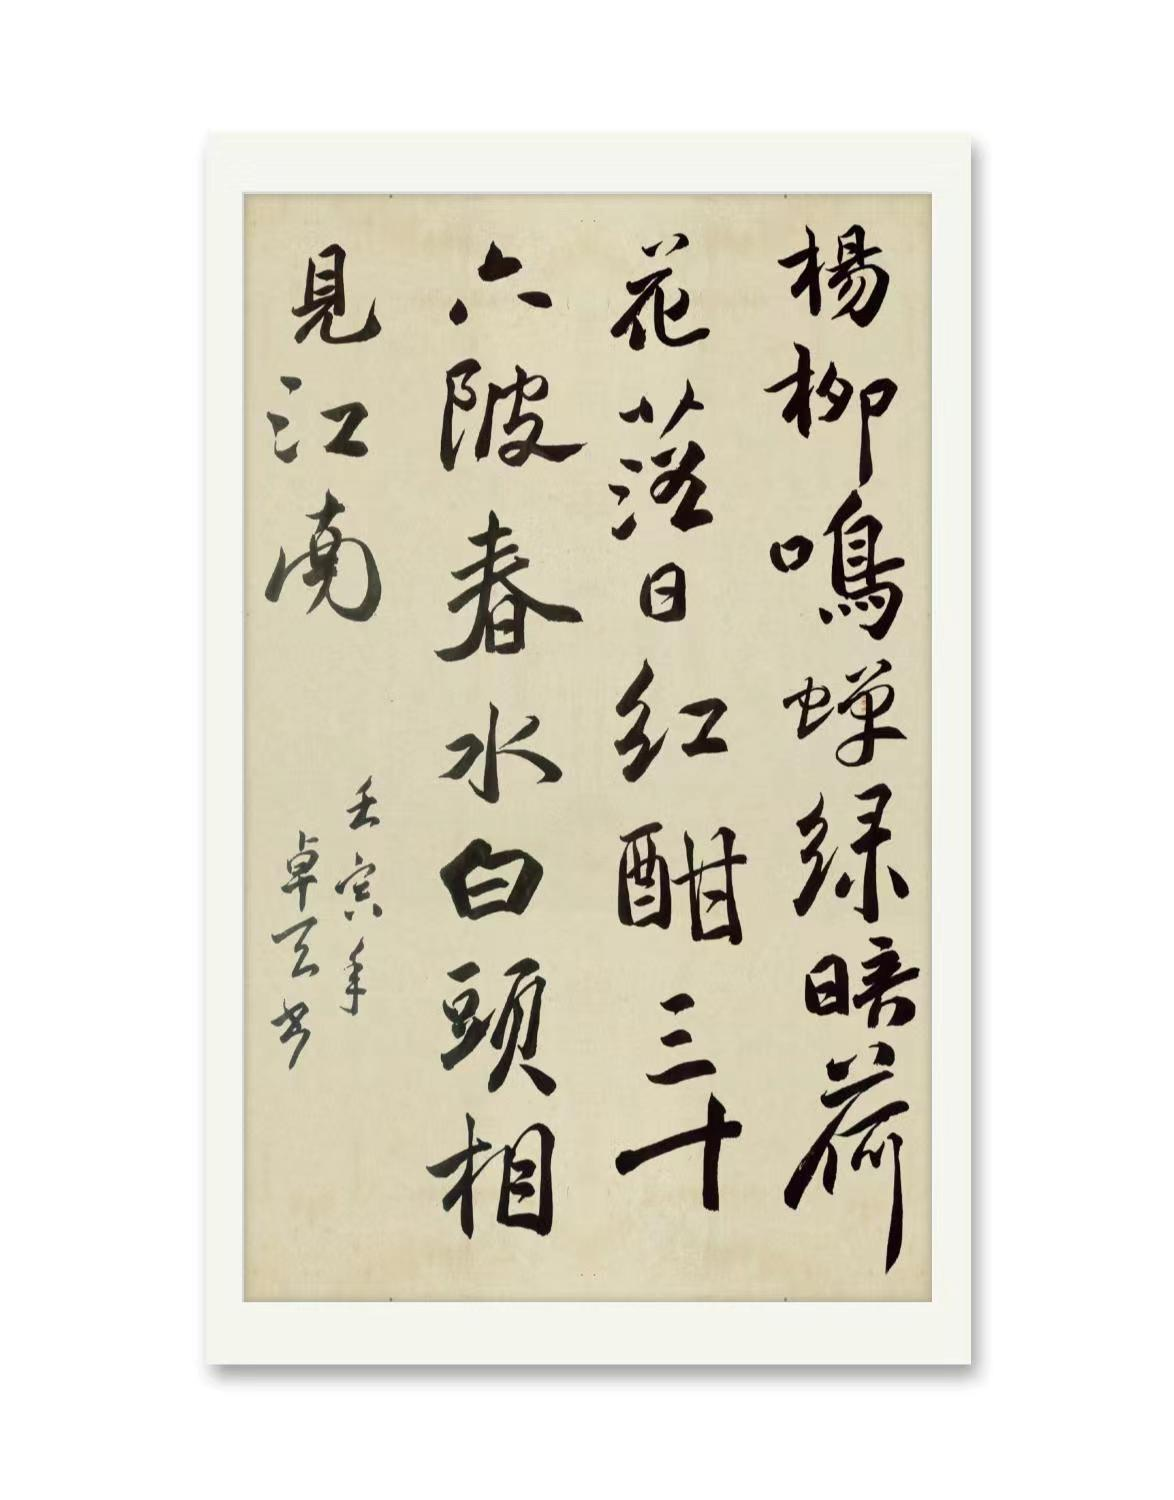 楊柳鳴蝉緑暗荷
花落日紅酣三十
六陂春水白頭相
見江南
壬寅年
卓天书